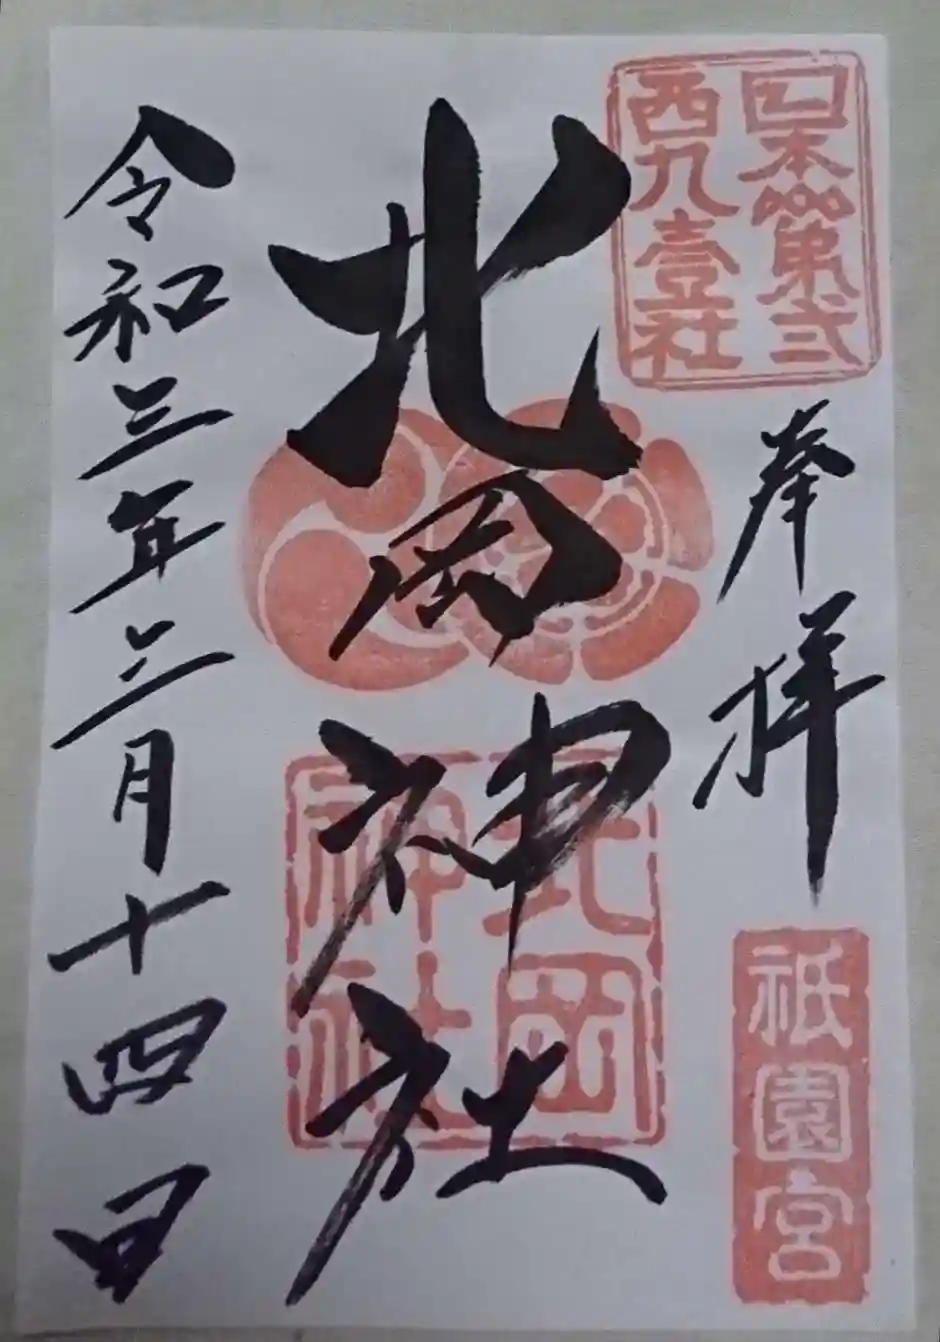 日本第弐
西九壹社
奉拝
祇園宮
北岡神社
北岡
神社
令和三年三月十四日